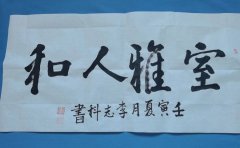 室雅人和
壬寅夏月李志科書